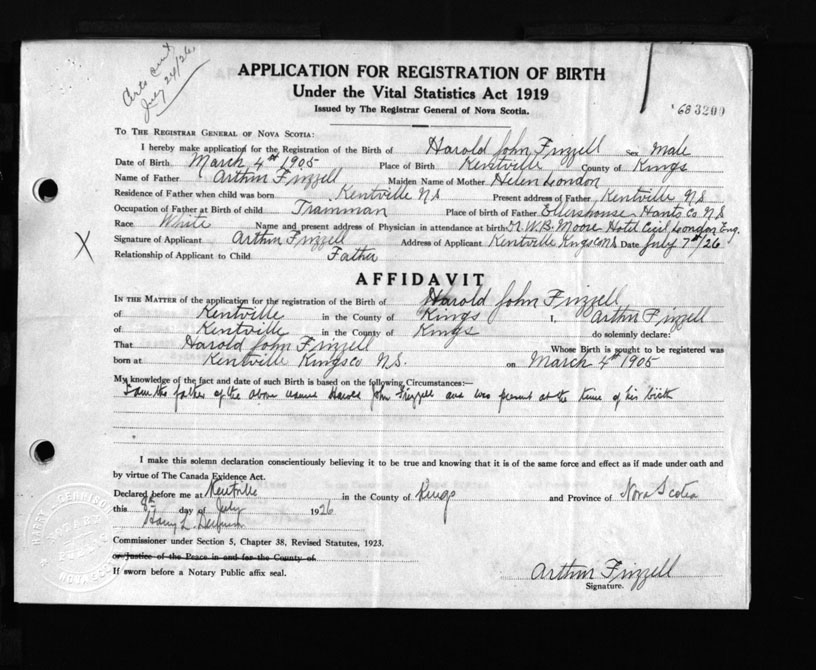 Arts cert
July 24/26
APPLICATION FOR REGISTRATION OF BIRTH
Under the Vital Statistics Act 1919
Issued by The Registrar General of Nova Scotia.
683200
TO THE REGISTRAR GENERAL OF NOVA SCOTIA:
I hereby make application for the Registration of the Birth of Harold John Frizzell Sex Male
Date of Birth March 4th 1905 Place of Birth Kentville County of Kings
Name of Father Arthur Frizzell Maiden Name of Mother Helen London
Residence of Father when child was born Kentville N.S Present address of Father Kentville N.S
Occupation of Father at Birth of child Tramman Place of birth of Father Ellershouse Hants Co N.S
Race White Name and present address of Physician in attendance at birth Dr W.B. Moore Hotel Cecil London Eng.
X
Signature of Applicant Arthur Frizzell Address of Applicant Kentville Kings Co N.S Date July 7th/26
Relationship of Applicant to Child Father
AFFIDAVIT
IN THE MATTER of the application for the registration of the Birth of Harold John Frizzell
of Kentville in the County of Kings I, Arthur Frizzell
of Kentville in the County of Kings do solemnly declare:
That Harold John Frizzell Whose Birth is sought to be registered was
born at Kentville Kings Co N.S. on March 4th 1905
My knowledge of the fact and date of such Birth is based on the following Circumstances:—
I am the father of the above named Harold John Frizzell and was present at the time of his birth
I make this solemn declaration conscientiously believing it to be true and knowing that it is of the same force and effect as if made under oath and
by virtue of The Canada Evidence Act.
Declared before me at Kentville in the County of Kings and Province of Nova Scotia
this 8th day of July 1926
Harry L.
Commissioner under Section 5, Chapter 38, Revised Statutes, 1923.
or Justice of the Peace in and for the County of
If sworn before a Notary Public affix seal.
Arthur Frizzell
Signature.